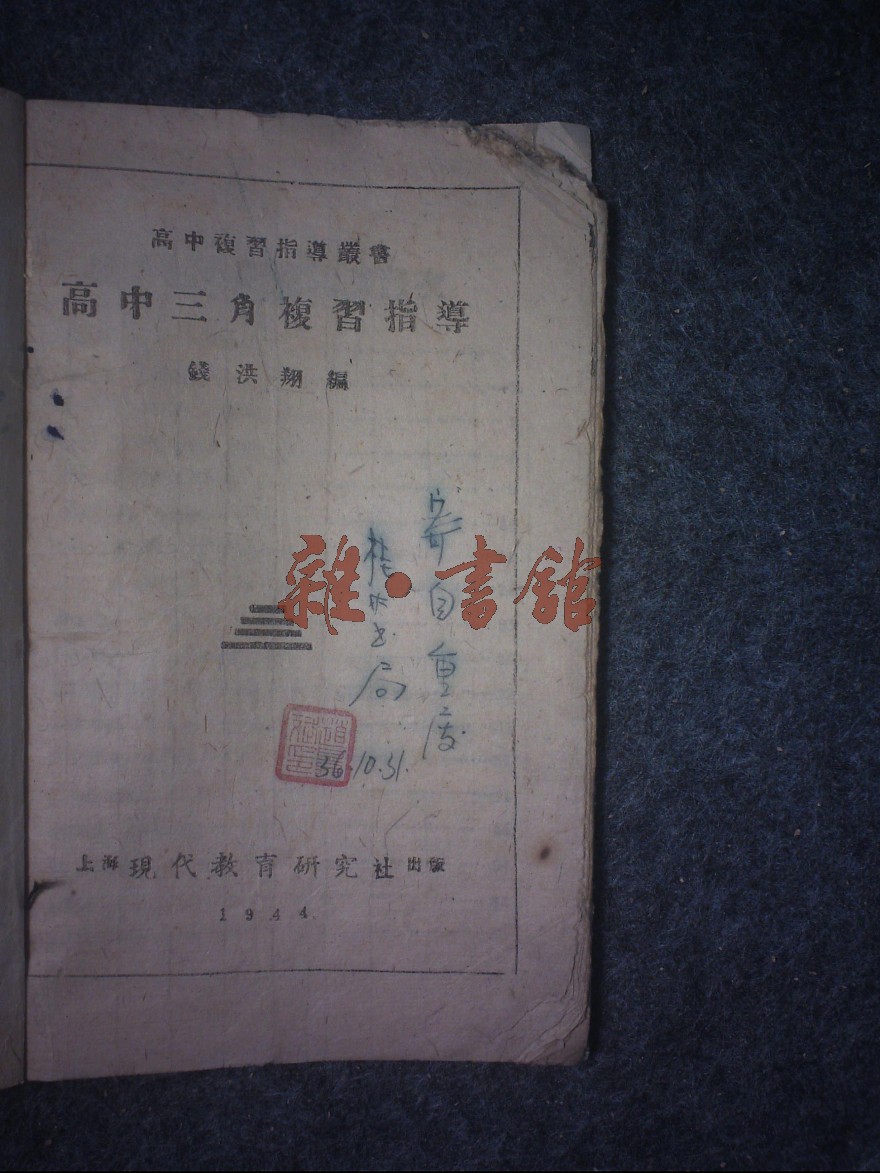 高中複習指導叢書
高中三角複習指導
錢洪翔編
寄自重慶
書局
36.10.31.
雜·書館
上海現代教育研究社出版
1944